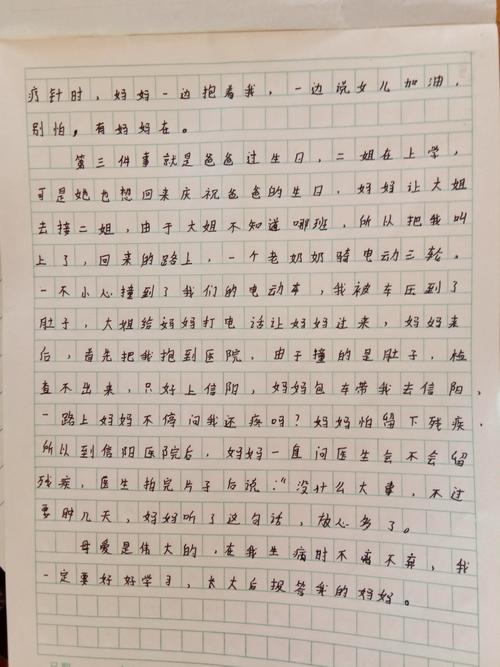 疗针时，妈妈一边抱着我，一边说女儿加油，
别怕，有妈妈在。
第三件事就是爸爸过生日，二姐在上学，
可是她也想回来庆祝爸爸的生日，妈妈让大姐
去接二姐，由于大姐不知道哪班，所以把我叫
上了，回来的路上，一个老奶奶骑电动三轮。
一不小心撞到了我们的电动车，我被车压到了
肚子，大姐给妈妈打电话让妈妈过来，妈妈来
后，首先把我抱到医院，由于撞的是肚子，检
查不出来，只好上信阳，妈妈包车带我去信阳，
一路上妈妈不停问我还疼吗？妈妈怕留下残疾，
所以到信阳医院后，妈妈一直问医生会不会留
残疾，医生拍完片子后说：“没什么大事，不过
要肿几天，妈妈听了这句话，放心多了。
母爱是伟大的，在我生病时不离不弃，我
一定要好好学习，长大后报答我的妈妈。